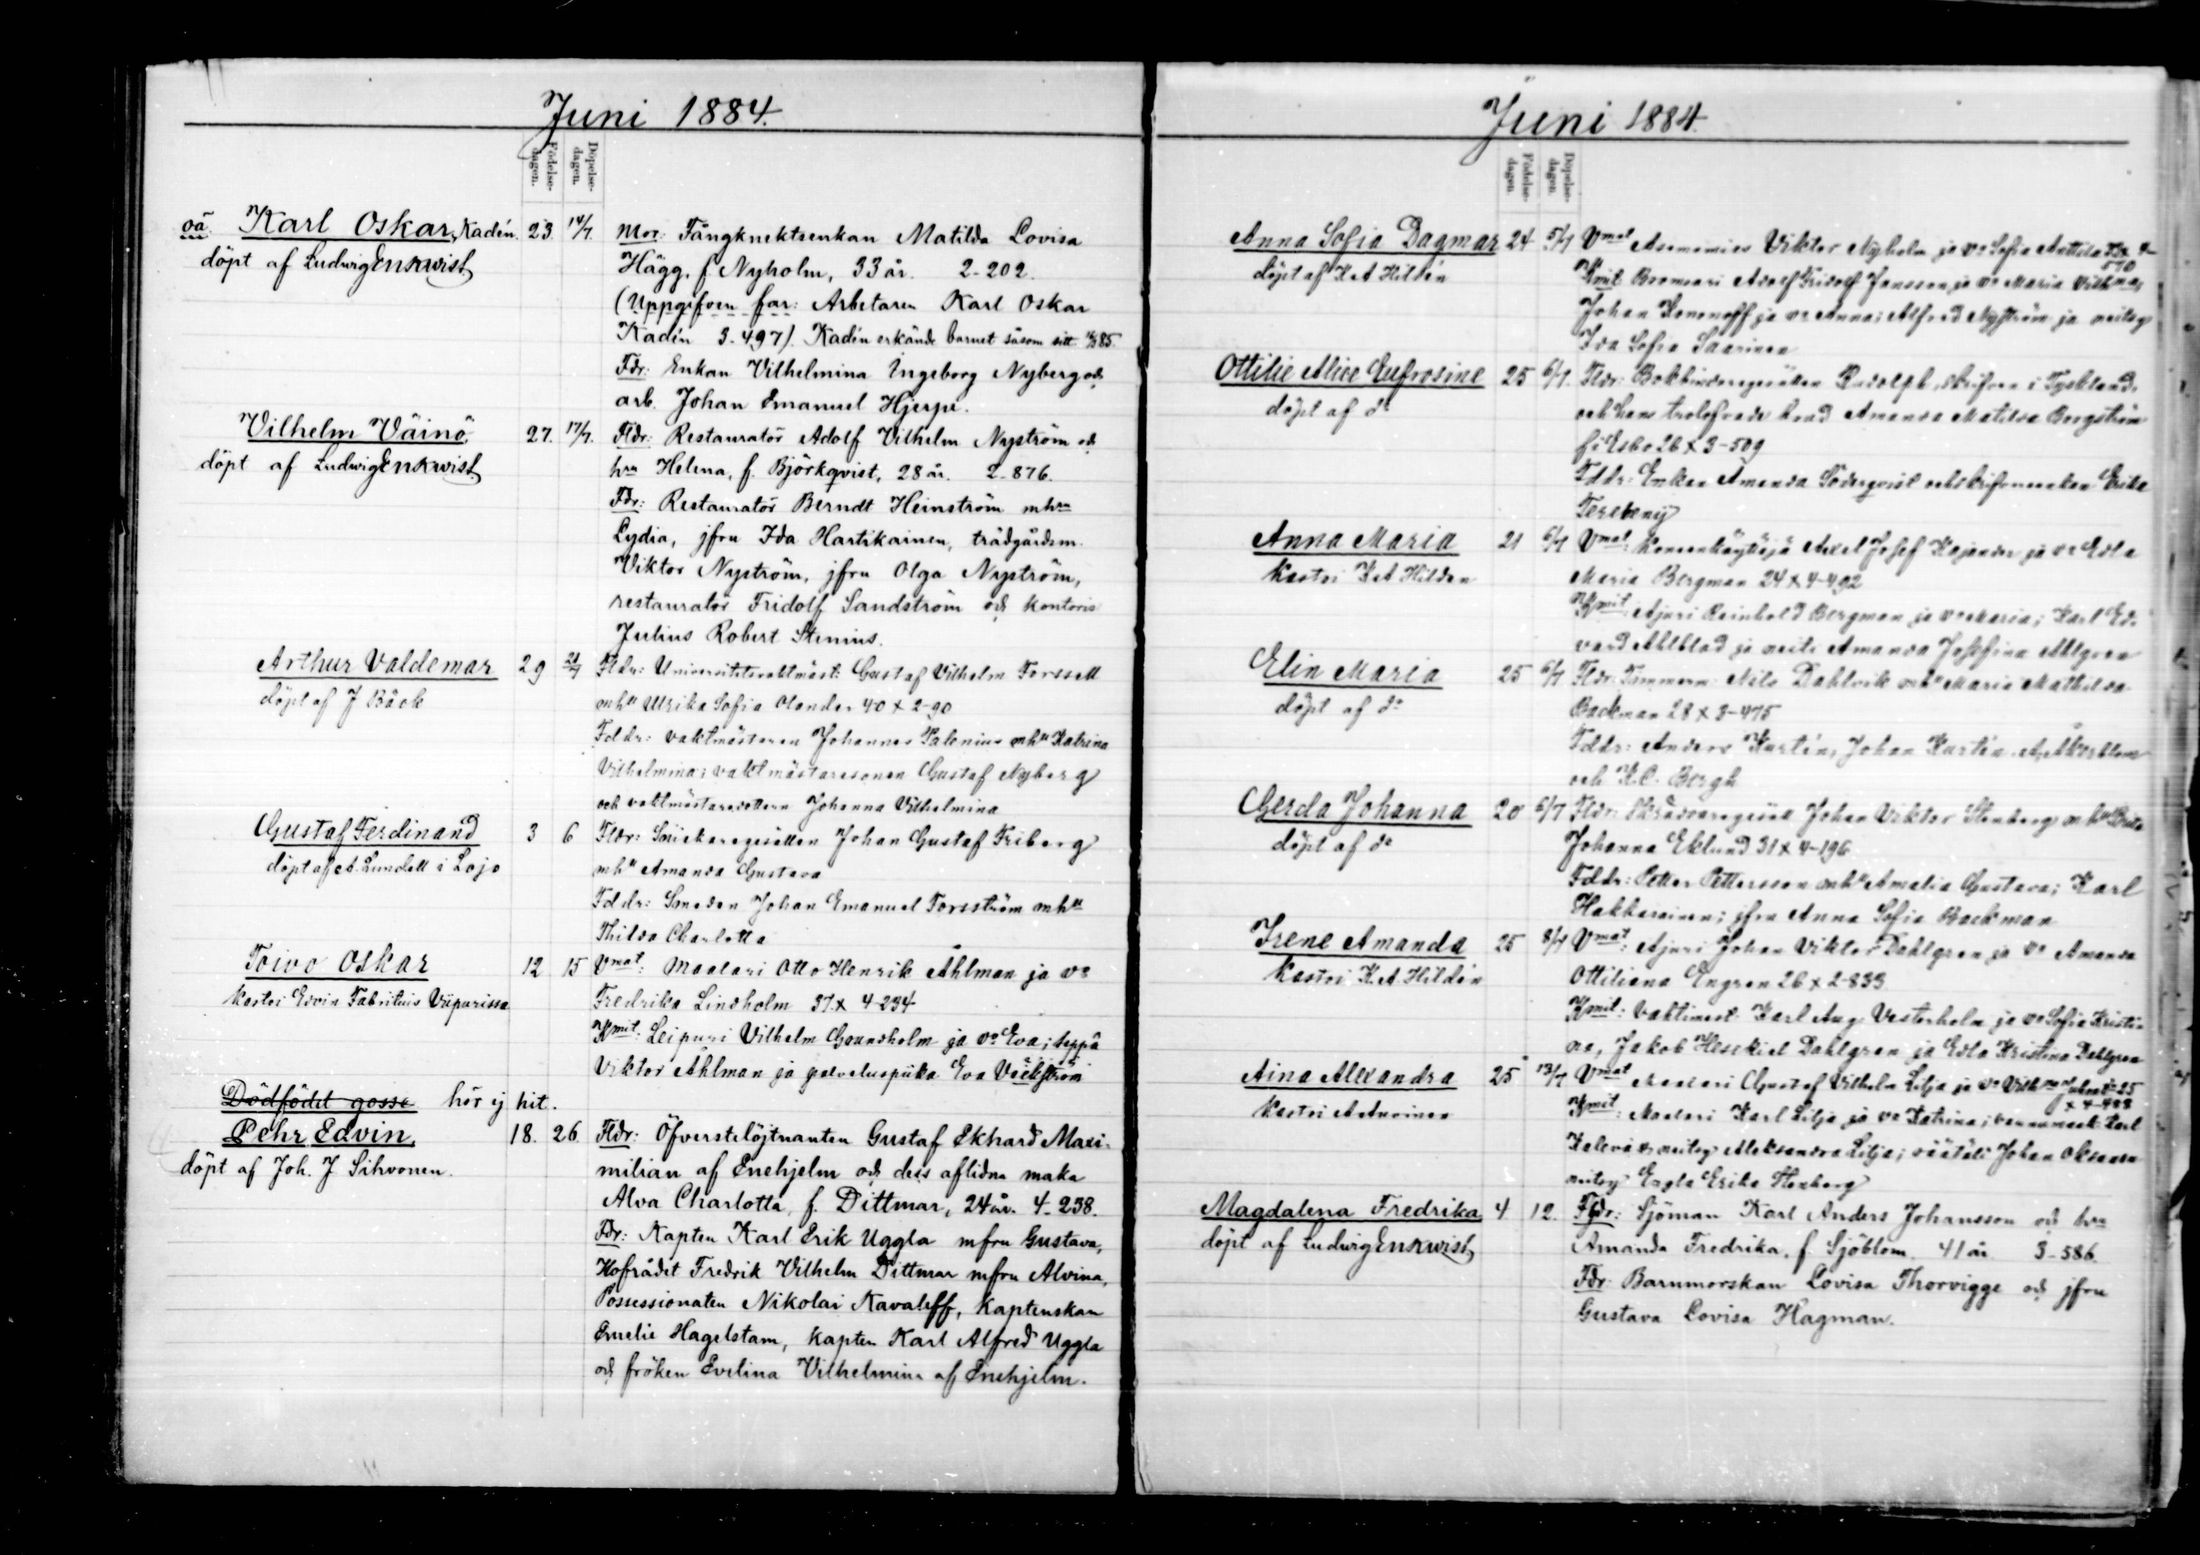 Juni 1884.
Födelse-dagen.
Döpelse-dagen.
oä. Karl Oskar, Kadén. 23. 14/7. Mor: Fångknektsenkan Matilda Lovisa
döpt af Ludvig Enkvist. Hägg, f. Nyholm, 33 år. 2-202.
(Uppgifven far: Arbetaren Karl Oskar
Kadén 3-497). Kadén erkände barnet såsom sitt 85.
Fdr: Enkan Vilhelmina Ingeborg Nyberg och
arb. Johan Emanuel Hjerpe.
Vilhelm Väinö 27. 17/7. Fldr: Restauratör Adolf Vilhelm Nyström och
döpt af Ludvig Enkvist. hru Helena, f. Björkqvist, 28 år. 2-876.
Fdr: Restauratör Berndt Heinström mhru
Lydia, jfru Ida Hartikainen, trädgårdsm.
Viktor Nyström, jfru Olga Nyström,
restauratör Fridolf Sandström och kontoris
Julius Robert Stenius.
Arthur Valdemar 29 21/7 Fldr: Universitetsvaktmäst: Gustaf Vilhelm Forssell
döpt af J Bäck mhu Ulrika Sofia Olander 40 x 2-90
Fddr: vaktmästaren Johannes Palenius mhu Katrina
Vilhelmina; vaktmästaresonen Gustaf Nyberg
och vaktmästaredottern Johanna Vilhelmina
Gustaf Ferdinand 3 6 Fldr: Snickaregesällen Johan Gustaf Friberg
döpt af A. Lundell i Lojo mhu Amanda Gustava
Fddr: Smeden Johan Emanuel Forsström mhu
Thilda Charlotta
Toivo Oskar 12 15 Vmat: Maalari Otto Henrik Åhlman ja vo
kastoi Edvin Fabritius Viipurissa Fredrika Lindholm 37 x 4-234
Kmit: Leipuri Vilhelm Grundholm ja vo Eva; seppä
Viktor Åhlman ja palveluspiika Eva Väckström
Dödfödd gosse hör ej hit.
Pehr Edvin, 18. 26. Fldr: Öfverstelöjtnanten Gustaf Ekhard Maxi-
döpt af Joh. J. Sihvonen. milian af Enehjelm och dess aflidna maka
Alva Charlotta, f. Dittmar, 24 år. 4-238.
Fdr: Kapten Karl Erik Uggla mfru Gustava,
Hofrådet Fredrik Vilhelm Dittmar mfru Alvina,
Possessionaten Nikolai Kavaleff, kaptenskan
Emelie Hagelstam, kapten Karl Alfred Uggla
och fröken Evelina Vilhelmina af Enehjelm.
Juni 1884.
Födelse-dagen.
Döpelse-dagen.
Anna Sofia Dagmar 24 5/7 Vmat Asemamies Viktor Nyholm ja vo Sofia Anttila
döpt af K A Hildén 570
Kmit Adolf Fridolf Jansson ja vo Maria Vilhma,
Johan Kononoff ja vo Anna; Alfred Nyström ja neitsy
Ida Sofia Saarinen
Ottilie Alice Eufrosine 25 6/7. Fldr: Bokbindaregesällen Rudolph, skrifven i Tyskland,
döpt af do och hans trolofvade Amanda Matilda Bergström
fr Esbo 26 x 3-509
Fddr: Enkan Amanda Söderqvist och Erika
Anna Maria 21 6/7 Vmat: Koneenkäyttäjä Axel Josef Kajander ja vo Edla
kastoi K A Hildén Maria Bergman 24 x 4-492
Kmit: Ajuri Reinhold Bergman ja vo Maria; Karl Ed-
vard Ahlblad ja neits Amanda Josefina Ahlgren
Elin Maria 25 6/7 Fldr: Timmerm: Nils Dahlvik mhu Maria Mathilda
döpt af do Backman 28 x 3-475
Fddr: Anders Kurtén, Johan Kurtén, A. Åkerblom
och K. O. Bergh
Gerda Johanna 20 6/7 Fldr: Skräddaregesäll Johan Viktor Stenberg mhu
döpt af do Johanna Eklund 31 x 4-196
Fddr: Petter Pettersson mhu Amalia Gustava; Karl
Hakkarainen; jfru Anna Sofia Backman
Irene Amanda 25 8/7 Vmat: Ajuri Johan Viktor Dahlgren ja vo Amanda
kastoi K. A. Hildén Ottiliana Engren 26 x 2-833
Kmit: Vahtimest: Karl Aug Vesterholm ja vo Sofia Kristi-
na, Jakob Hesekiel Dahlgren ja Edla Kristina Dahlgren
Aina Alexandra 25 13/7 Vmat Maalari Gustaf Vilhelm Lilja ja vo 25
kastoi A Auvinen x 4-488
Kmit: Maalari Karl Lilja ja vo Katrina; Karl
neitsy Aleksandra Lilja; räätäli Johan Oksanen
neitsy Engla Erika Stenberg
Magdalena Fredrika 4 12. Fldr: Sjöman Karl Anders Johansson och hru
döpt af Ludvig Enkvist. Amanda Fredrika, f. Sjöblom 41 år 3-586
Fdr: Barnmorskan Lovisa Thorvigge och jfru
Gustava Lovisa Hagman.